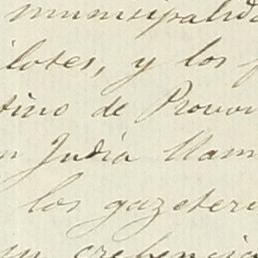 municipalida
ilotes, y los
tino de Provon
n Judia Nam
los gazetere
su crebencia